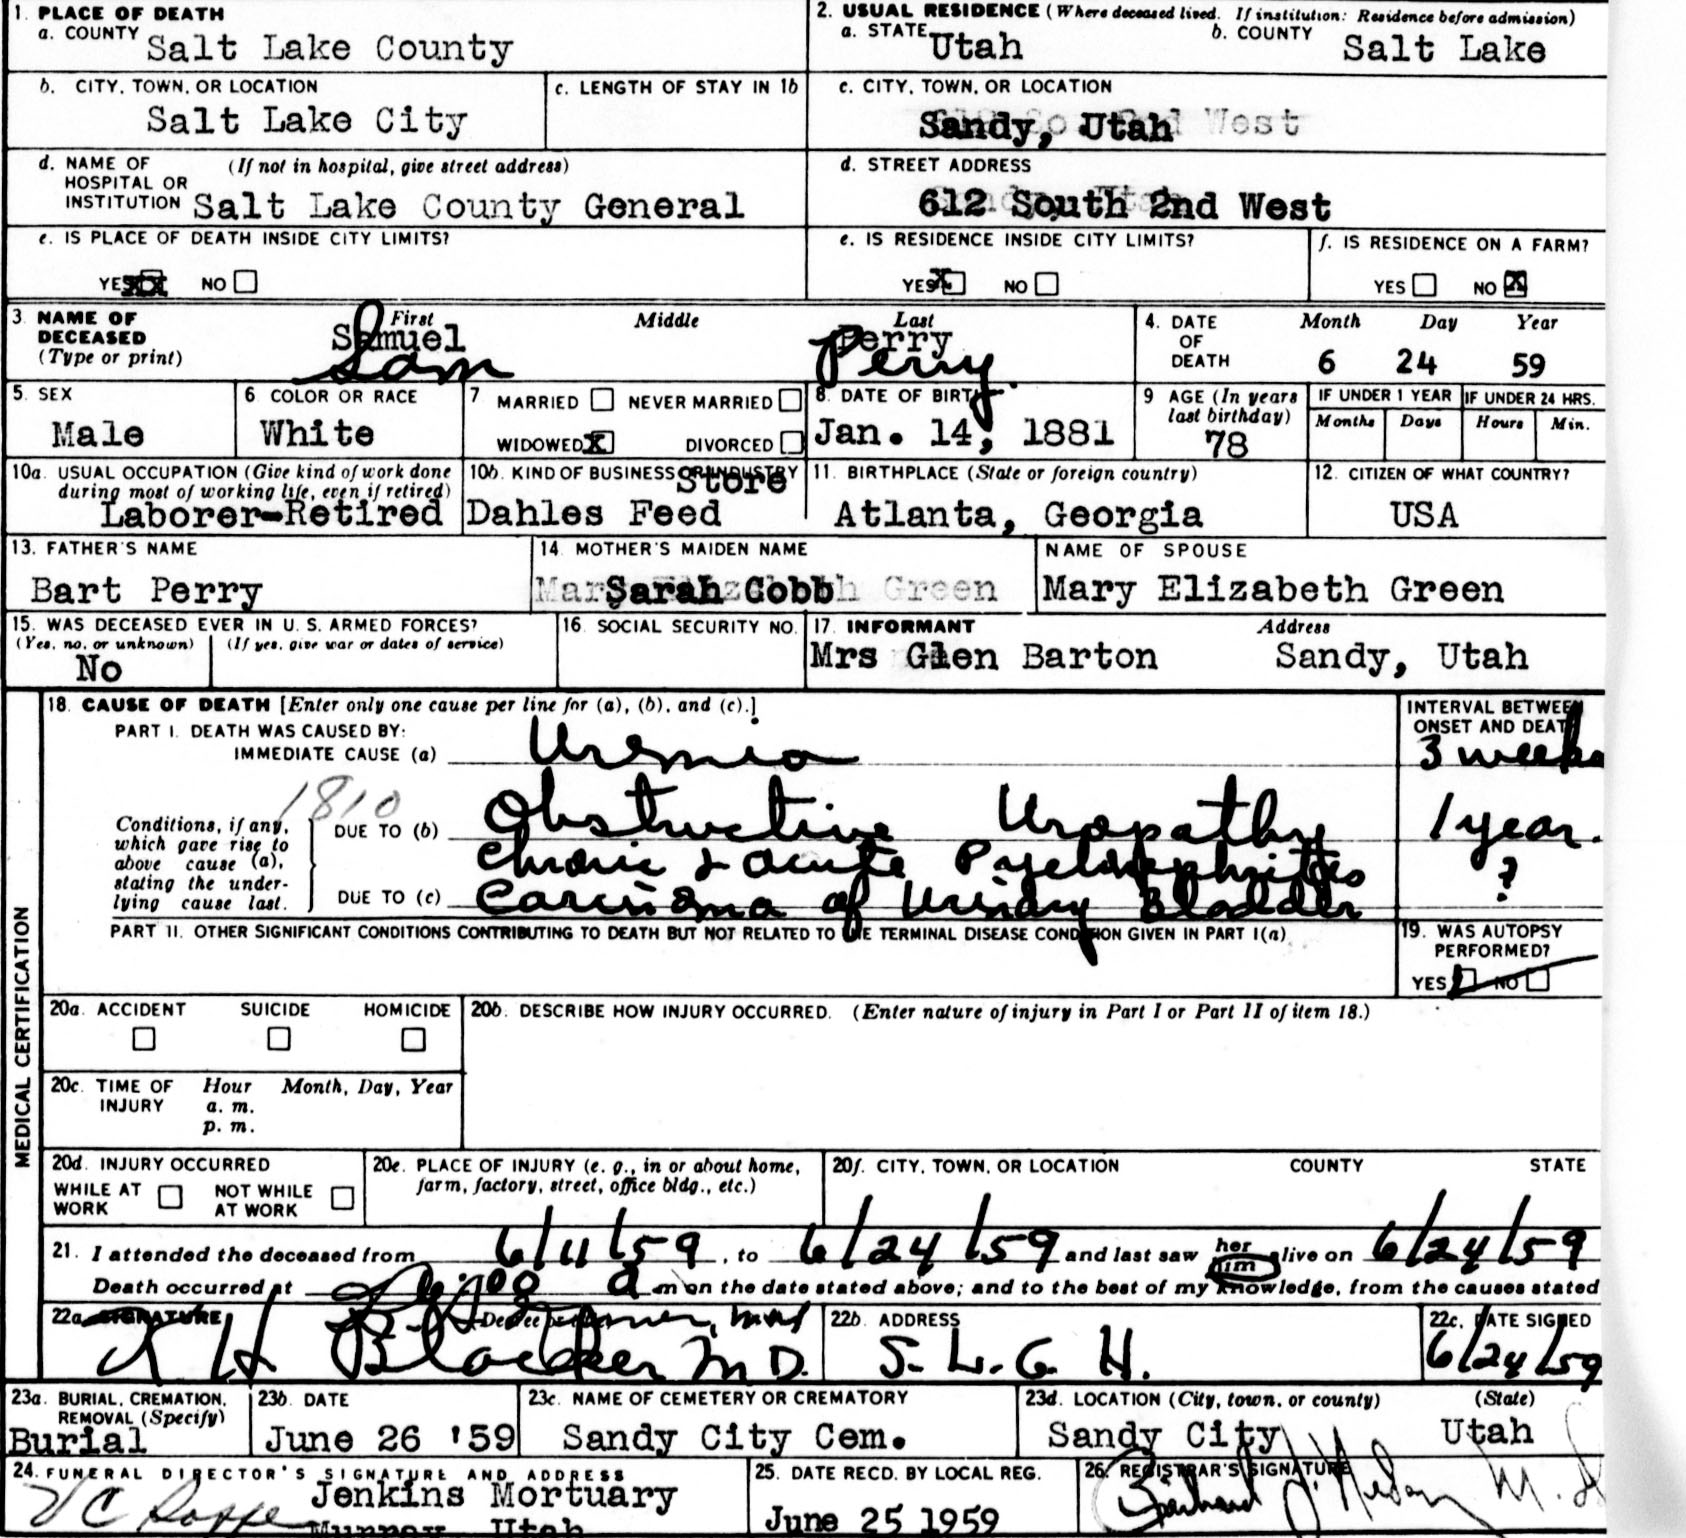 1. PLACE OF DEATH
a. COUNTY Salt Lake County
2. USUAL RESIDENCE (Where deceased lived. If institution: Residence before admission)
a. STATE Utah b. COUNTY Salt Lake
b. CITY, TOWN, OR LOCATION
Salt Lake City
c. LENGTH OF STAY IN 1b
c. CITY, TOWN, OR LOCATION
Sandy, Utah
d. NAME OF (If not in hospital, give street address)
HOSPITAL OR
INSTITUTION Salt Lake County General
d. STREET ADDRESS
612 South 2nd West
e. IS PLACE OF DEATH INSIDE CITY LIMITS?
YES NO
e. IS RESIDENCE INSIDE CITY LIMITS?
YES X NO
f. IS RESIDENCE ON A FARM?
YES NO X
3. NAME OF First Middle Last
DECEASED Samuel Perry
(Type or print) Sam Perry
4. DATE Month Day Year
OF
DEATH 6 24 59
5. SEX
Male
6. COLOR OR RACE
White
7 MARRIED NEVER MARRIED
WIDOWED X DIVORCED
8. DATE OF BIRTH
Jan. 14, 1881
9 AGE (In years
last birthday)
78
IF UNDER 1 YEAR
Months Days
IF UNDER 24 HRS.
Hours Min.
10a. USUAL OCCUPATION (Give kind of work done
during most of working life, even if retired)
Laborer-Retired
10b. KIND OF BUSINESS OR INDUSTRY
Store
Dahles Feed
11. BIRTHPLACE (State or foreign country)
Atlanta, Georgia
12. CITIZEN OF WHAT COUNTRY?
USA
13. FATHER'S NAME
Bart Perry
14. MOTHER'S MAIDEN NAME
Sarah Cobb
NAME OF SPOUSE
Mary Elizabeth Green
15. WAS DECEASED EVER IN U. S. ARMED FORCES?
(Yes, no, or unknown) (If yes, give war or dates of service)
No
16. SOCIAL SECURITY NO.
17. INFORMANT Address
Mrs Glen Barton Sandy, Utah
MEDICAL CERTIFICATION
18. CAUSE OF DEATH [Enter only one cause per line for (a), (b), and (c).]
PART I. DEATH WAS CAUSED BY:
IMMEDIATE CAUSE (a) Uremia
INTERVAL BETWEEN
ONSET AND DEATH
3 weeks
1810
Conditions, if any,
which gave rise to
above cause (a),
stating the under-
lying cause last.
DUE TO (b) Obstructive Uropathy 1 year.
Chronic & acute Pyelonephritis
DUE TO (c) Carcinoma of Urinary Bladder ?
PART II. OTHER SIGNIFICANT CONDITIONS CONTRIBUTING TO DEATH BUT NOT RELATED TO THE TERMINAL DISEASE CONDITION GIVEN IN PART I(a)
19. WAS AUTOPSY
PERFORMED?
YES NO
20a. ACCIDENT SUICIDE HOMICIDE
20b. DESCRIBE HOW INJURY OCCURRED. (Enter nature of injury in Part I or Part II of item 18.)
20c. TIME OF Hour Month, Day, Year
INJURY a. m.
p. m.
20d. INJURY OCCURRED
WHILE AT NOT WHILE
WORK AT WORK
20e. PLACE OF INJURY (e. g., in or about home,
farm, factory, street, office bldg., etc.)
20f. CITY, TOWN, OR LOCATION COUNTY STATE
21. I attended the deceased from 6/11/59, to 6/24/59 and last saw her him alive on 6/24/59
Death occurred at a m on the date stated above; and to the best of my knowledge, from the causes stated
22a. SIGNATURE
K H Blacker M D.
22b. ADDRESS
S. L. G. H.
22c. DATE SIGNED
6/24/59
23a. BURIAL, CREMATION,
REMOVAL (Specify)
Burial
23b. DATE
June 26 '59
23c. NAME OF CEMETERY OR CREMATORY
Sandy City Cem.
23d. LOCATION (City, town, or county) (State)
Sandy City Utah
24. FUNERAL DIRECTOR'S SIGNATURE AND ADDRESS
Jenkins Mortuary
Murray, Utah
25. DATE RECD. BY LOCAL REG.
June 25 1959
26. REGISTRAR'S SIGNATURE